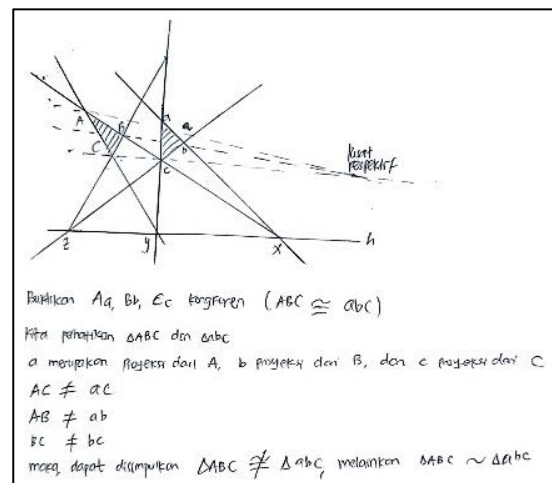 A
B
C
a
a
b
c
pusat
perspektif
z
y
x
h
Buktikan Aa, Bb, Cc kongruen (ABC ≅ abc)
Kita perhatikan ΔABC dan Δabc
a merupakan Proyeksi dari A, b proyeksi dari B, dan c proyeksi dari C
AC ≠ ac
AB ≠ ab
BC ≠ bc
maka, dapat disimpulkan ΔABC ≇ Δabc, melainkan ΔABC ~ Δabc